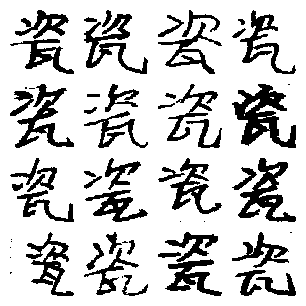 瓷瓷瓷瓷
瓷瓷瓷瓷
瓷瓷瓷瓷
瓷瓷瓷瓷